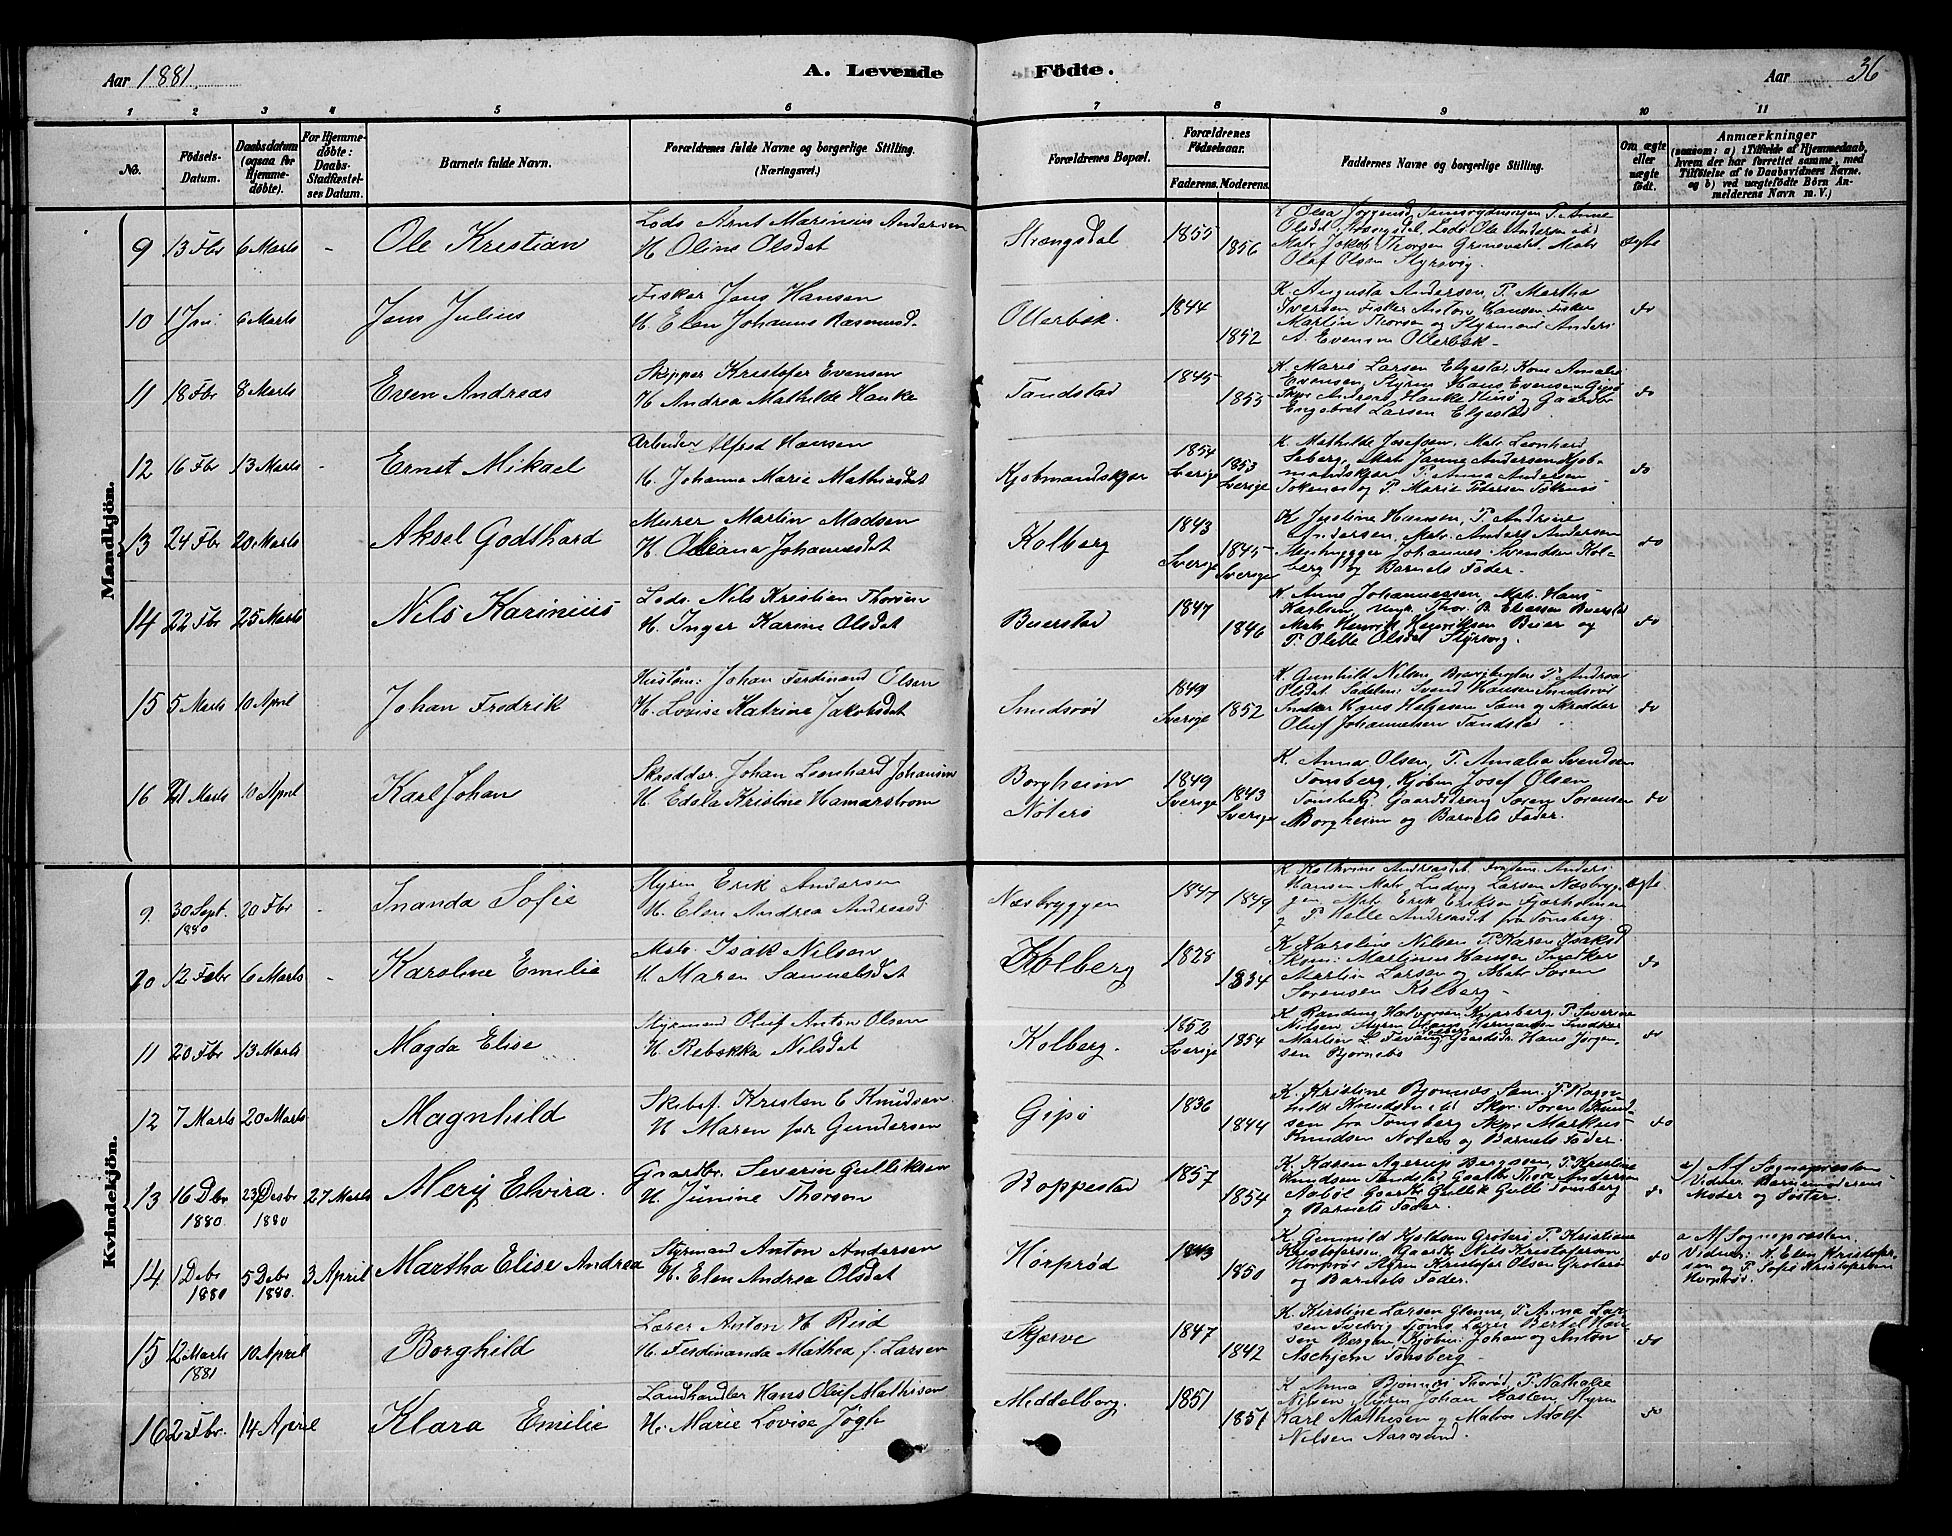 Aar 1881
A. Levende Födte.
Aar 36
1 2 3 4 5 6 7 8 9 10 11
No.
Födsels-Datum.
Daabsdatum (ogsaa for Hjemme-døbte).
For Hjemme-døbte: Daabs-Stadfæstel-ses Datum.
Barnets fulde Navn.
Forældrenes fulde Navne og borgerlige Stilling. (Næringsvei.)
Forældrenes Bopæl.
Forældrenes Födselsaar.
Faderens. Moderens.
Faddernes Navne og borgerlige Stilling.
Om ægte eller uægte født.
Anmærkninger
(saasom: a) i Tilfælde af Hjemmedaab, hvem der har forrettet samme, med Tilföielse af to Daabsvidners Navne. og b) ved uægtefödte Börn An-melderens Navn m. V.)
Mandkjön.
9 13 Fbr 6 Marts - Ole Kristian
Lods Arnt Marinius Andersen
H. Oline Olsdat
Strængsdal 1855 1856
Olsdat Strængsdal, Lods Ole Andersen
Olaf Olsen Styrsvig.
Ægte
10 1 Jan. 6 Marts Jens Julius
Fisker Jens Hansen
H. Elen Johanne Rasmusd.
Ollerbok. 1844 1852
K. Augusta Andersen, P. Martha
Iversen Fisker Anton Hansen Fisker
Martin Thorsen og Styrmand Anders
A. Evensen Ollerbok
do
11 18 Fbr 8 Marts Even Andreas
Skipper Kristofer Evensen
H. Andrea Mathilde Hanke
Tandstad 1845 1853
K. Marie Larsen Elgestad, Kone Amalie
Evensen, Styrm Hans Evensen Gipø
Skpr Anders Hanke Husø og Gaardbr
Engebret Larsen Elgestad
do
12 16 Fbr 13 Marts - Ernst Mikael
Arbeider Alfred Hansen
H. Johanne Marie Mathiasdat
Kjobmandskjær 1854 Sverige 1853 Sverige
K. Mathilde Josefsen, Mat. Leonhard
Seberg, Mat. Janne Andersen Kjøb-
mandskjær P. Anna Andersen
Tokenes og P. Marie Pedersen Tokenes
do
13 24 Fbr 20 Marts Aksel Godthard
Murer Martin Madsen
H. Oliana Johannesdat
Kolberg 1843 Sverige 1845 Sverige
K. Justine Hansen, P. Andrine
Andersen, Mat. Anders Andersen
Johannes Svendsen Kol-
berg og Barnets Fader.
do
14 22 Fbr 25 Marts Nils Karinius
Lods. Nils Kristian Thorsen
H. Inger Karine Olsdat
Buerstad 1847 1846
K. Anne Johannessen, Mat. Hans
Karlsen, Ungk. Thor B. Eliassen Buerstad
Mat. Henrik Henriksen Beier og
P. Olette Olsdat Styrsvig.
do
15 5 Marts 10 April Johan Fredrik
Johan Ferdinand Olsen
H. Lovise Katrine Jakobsdat
Smidsrød 1849 Sverige 1852
K. Gunhild Nilsen P. Andrea
Olsdat Svend Hansen Smidsrød
Snedker Hans Helgesen Sem og Skrædder
Oluf Johannesen Tandstad
do
16 21 Marts 10 April Karl Johan
Skrædder. Johan Leonhard Johansen
H. Edela Kristine Hamarstrom
Borgheim Nøterø 1849 Sverige 1843 Sverige
K. Anna Olsen, P. Amalia Svendsen
Tønsberg, Kjøbm Josef Olsen
Tønsberg, Gaardsdreng Søren Sørensen
Borgheim og Barnets Fader.
do
Kvindekjön.
9 30 Sept. 1880 20 Fbr - Inanda Sofie
Styrm Erik Andersen
H. Elen Andrea Andreasd.
Næsbryggen 1847 1849
K. Kathrine Andreasdat, Anders
Hansen Matr. Ludvig Larsen Næsbryg-
gen, Mat. Erik Eriksen Fjærholmen
og P. Helle Andreasdt fra Tønsberg.
Ægte.
10 12 Febr 6 Marts - Karoline Emilie
Matr. Isak Nilsen
H. Maren Samuelsdat
Kolberg 1828 1834
K. Karoline Nilsen P. Karen Isaksd
Martinus Hansen Snedker
Martin Larsen og Matr Søren
Sørensen Kolberg
do
11 20 Fbr 13 Marts Magda Elise
Styrmand Oluf Anton Olsen
H. Rebekka Nilsdat
Kolberg. 1852 Sverige 1854
K. Randine Halvorsen P. Severine
Nilsen, Styrm Hermansen Snedker
Martin L. Gaardbr. Hans Jørgen-
sen Bjørnebo
do
12 7 Marts 20 Marts Magnhild
Skibsf. Kristen C Knudsen.
H. Maren født Gundersen
Gipø 1836 1844
K. Kristine Bjønnes Sem, P. Ragn-
hild Knudsen, Skpr. Søren Knud-
sen fra Tønsberg Skpr Markus
Knudsen Nøterø og Barnets Fader.
do
13 16 Dbr 1880 23 Desbr 1880 27 Marts Merij Elvira.
Gaardbr. Severin Gulliksen
H. Jünine Thorsen
Roppestad 1857 1854
K. Karen Agerup Bergsen, P. Kristine
Knudsen Tandstad, Gaardbr Thore Andersen
Nabøl Gaardbr Gullik Gulli Tønsberg
og Barnets Fader.
do
a) Af Sognepræsten
Vidner. Barnemoderens
Moder og Søster.
14 1 Debr 1880 5 Debr 1880. 3 April Martha Elise Andrea
Styrmand Anton Andersen
H. Elen Andrea Olsdat
Hørprød 1843 1850
K. Gunnhild Kjeldsen Groterø P. Kristiane
Kristofersen, Gaardbr Nils Kristofersen
Hørprød Styrm Kristofer Olsen Groterø
og Barnets Fader.
do
a Af Sognepræsten.
Vidner: K. Elen Kristofer-
sen og P. Sofie Kristofersen
Hørprød.
15 12 Marts 1881 10 April Borghild
Lærer Anton H. Riid
H. Ferdinanda Mathea f. Larsen
Skjerve 1847 1842
K. Kirstine Larsen Glenne, P. Anna Lar-
sen Lærer Bertel Han-
sen Bergan Kjøbm: Johan og Anton
Aschjem Tønsberg
do
16 2 Fbr. 14 April Klara Emilie
Landhandler Hans Oluf Mathisen
H. Marie Lovise Jøgh
Middelborg. 1851 1851
K. Anna Bjønnes Thorød, P. Nathalie
Nilsen Styrm Johan Styrm
Karl Mathisen og Matros Adolf
Nilsen Aarøsund.
do